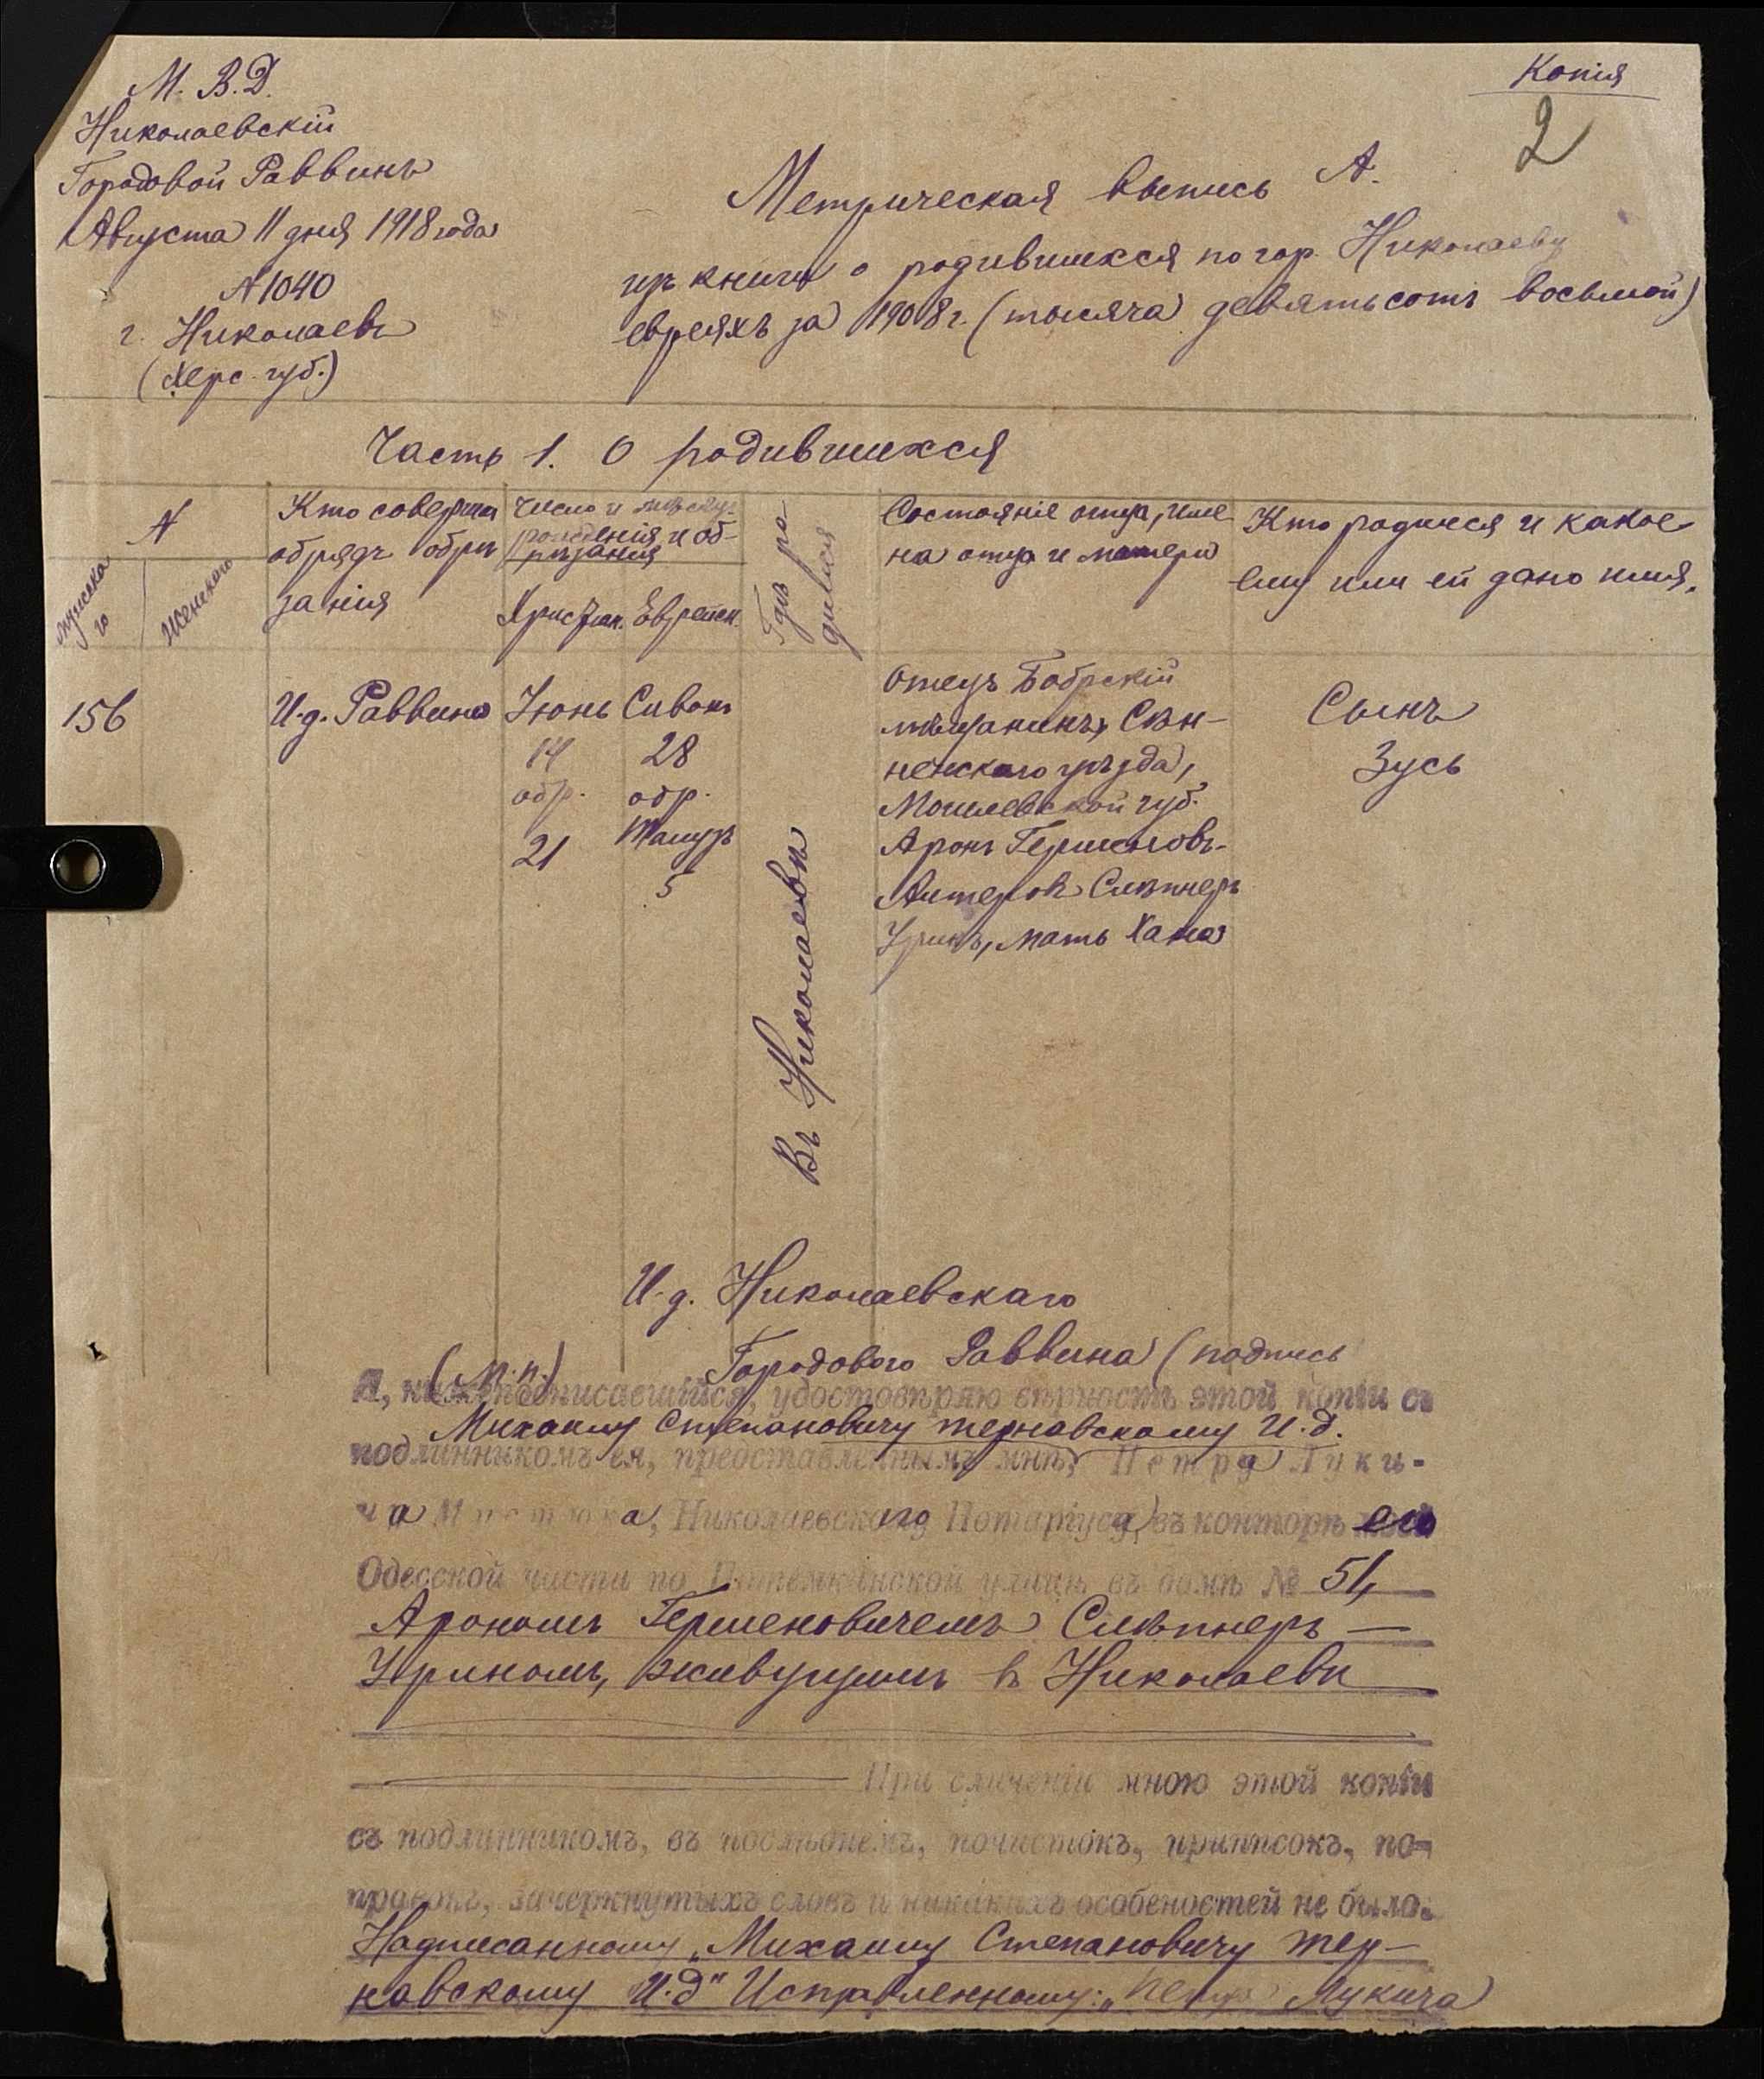 Копія
2
М. В. Д.
Николаевскій
Городовой Раввинъ
Августа 11 дня 1918 года
№ 1040
г. Николаевъ
(Херс. губ.)
Метрическая выпись А.
изъ книги о родившихся по гор. Николаеву
евреяхъ за 1908 г. (тысяча девятьсотъ восьмой)
Часть 1. О родившихся
№
мужска
го
Женскаго
Кто соверша
обрядъ обрѣ
занія
Число и мѣсяцъ
рожденія и об-
рѣзанія
Христіан. Еврейск.
Гдѣ ро-
дился
Состояніе отца, име
на отца и матери
Кто родился и какое
ему или ей дано имя.
156
И.д. Раввина
Іюнь
14
обр.
21
Сиванъ
28
обр.
Тамузъ
5
Въ Николаевѣ
Отецъ Бобрскій
мѣщанинъ, Сѣн-
ненскаго уѣзда,
Могилевской губ.
Аронъ Гершоновъ-
Алтеровъ Слѣпнеръ
Уринъ, мать Хана
Сынъ
Зусь
И.д. Николаевскаго
Городового Раввина (подпись
(М.п.)
Я, нижеподписавшійся, удостовѣряю вѣрность этой копіи съ
Михаилу Степановичу Тернавскому И.д.
подлинникомъ ея, представленнымъ мнѣ, Петра Луки-
ча, Николаевскаго Нотаріуса, въ конторѣ его
Одесской части по Потемкинской улицѣ въ домѣ № 51,
Арономъ Гершеновичемъ Слѣпнеръ —
Уриномъ, живущимъ въ Николаевѣ
При сличеніи мною этой копіи
съ подлинникомъ, въ послѣднемъ, почистокъ, приписокъ, по-
правокъ, зачеркнутыхъ словъ и никакихъ особеностей не было.
Надписанному „Михаилу Степановичу Тер-
навскому И.д" Исправленному: „Петра Лукича